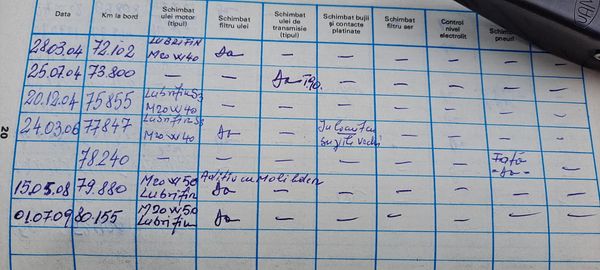 Data Km la bord Schimbat ulei motor (tipul) Schimbat filtru ulei Schimbat ulei de transmisie (tipul) Schimbat bujii și contacte platinate Schimbat filtru aer Control nivel electrolit Schimb pneuri
28.03.04 72.102 Lubrifin M20W40 Da — — — — —
25.07.04 73800 — — Da T90. — — — —
20.12.04 75855 Lubrifin S3 M20W40 — — — — — —
24.03.06 77847 Lubrifin M20W40 Da — bujiile vechi — — —
78.240 — — — — — — Față - Da -
15.05.08 79.880 M20W50 Lubrifin Aditiv cu molibden Da — — — — —
01.07.09 80.155 M20W50 Lubrifin Da — — — — —
20